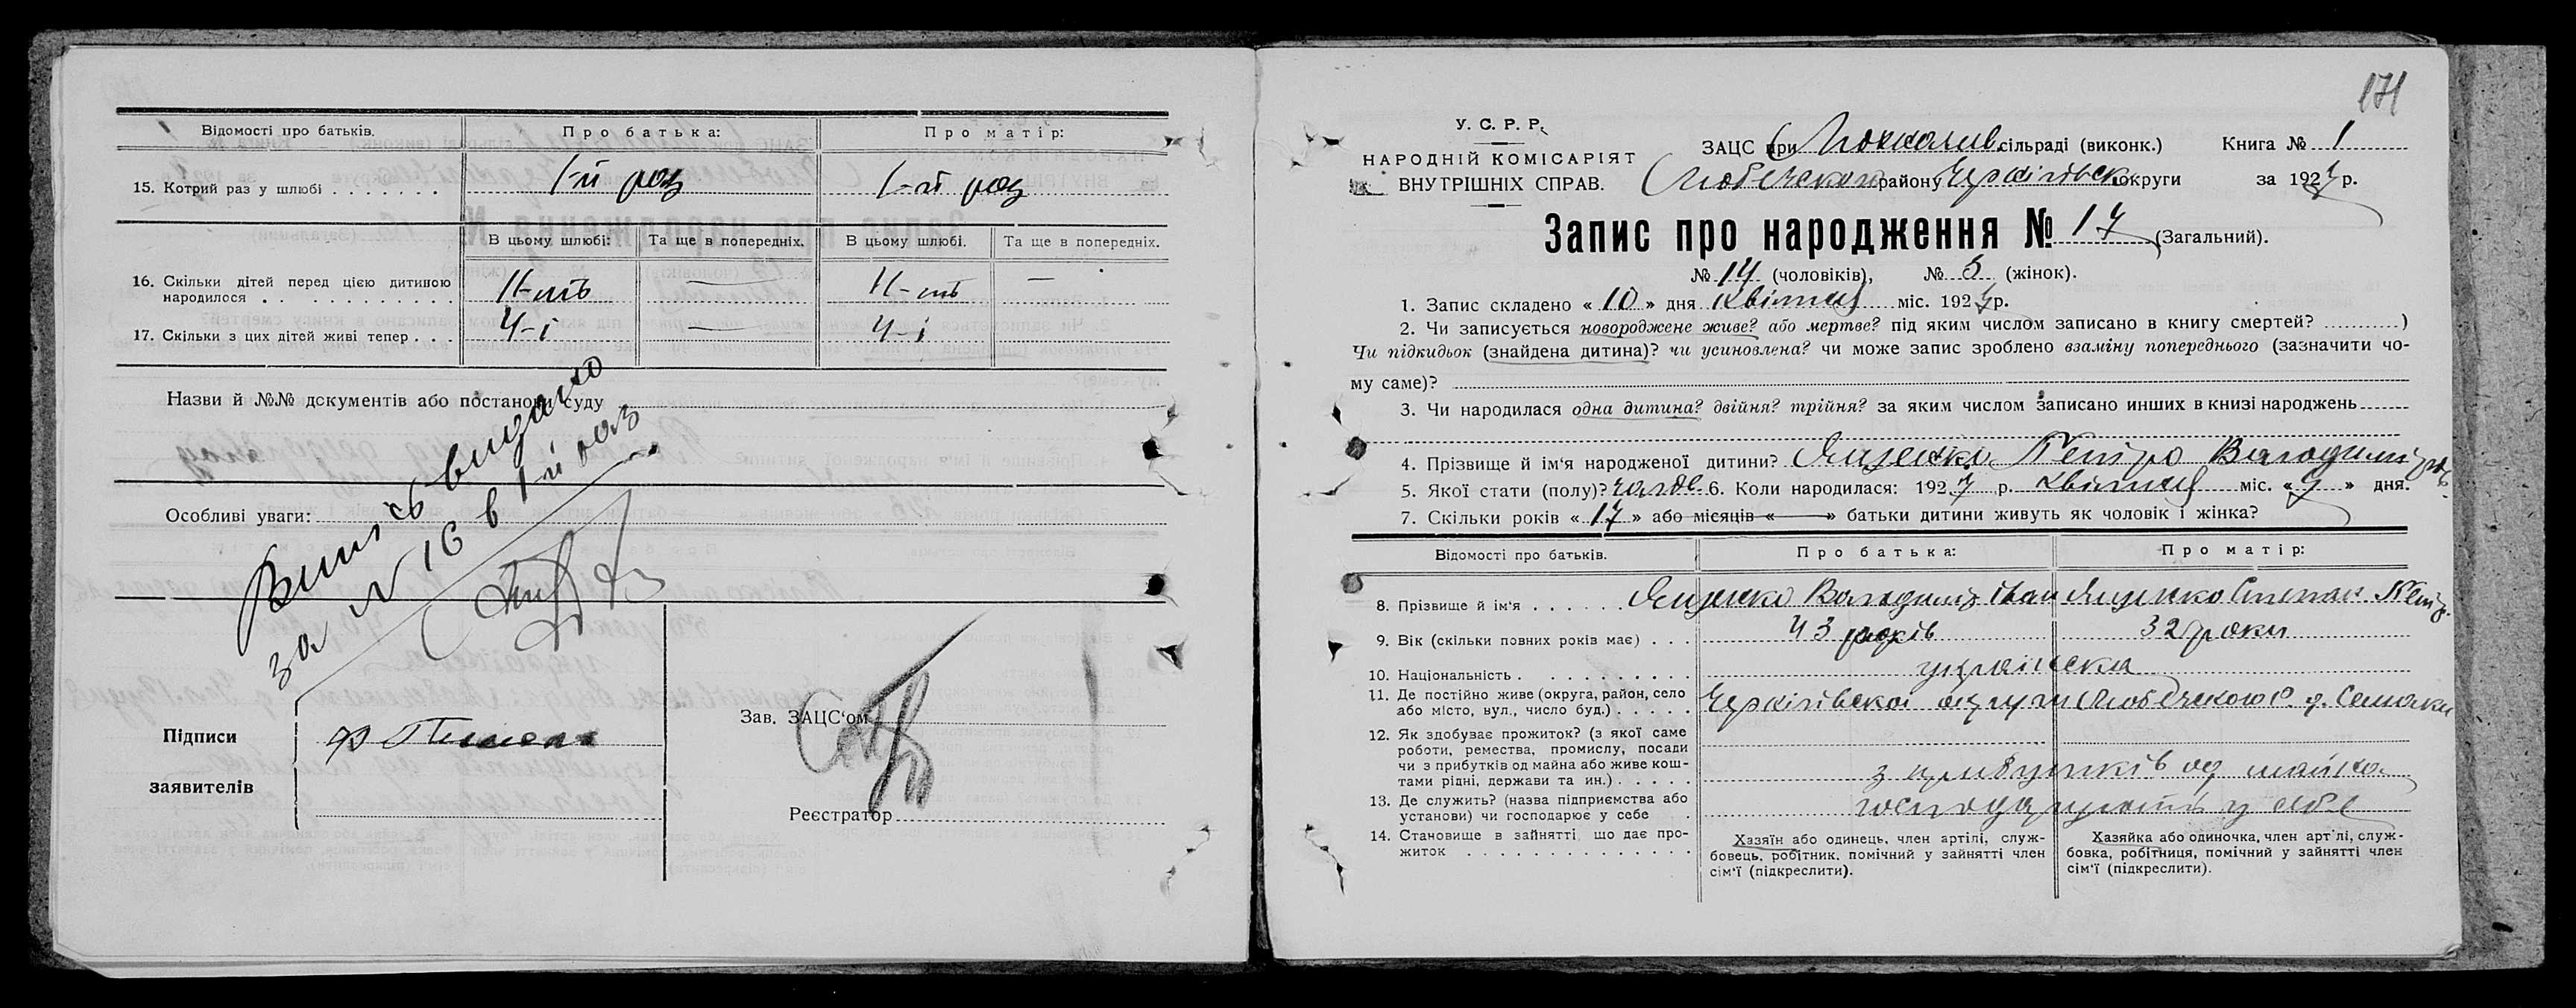 Відомості про батьків. Про батька: Про матір:
15. Котрий раз у шлюбі . . . . . . . 1-й раз 1-й раз
В цьому шлюбі: Та ще в попередніх. В цьому шлюбі. Та ще в попередніх.
16. Скільки дітей перед цією дитиною
народилося . . . . . . . . . . . —
17. Скільки з цих дітей живі тепер . . . 4-і — 4-і
Назви й №№ документів або постанови суду
Особливі уваги:
Випись видано
за № 16 в 1-й раз
Підписи
заявителів
Зав. ЗАЦС'ом
Реєстратор
171
У. С. Р. Р.
НАРОДНІЙ КОМІСАРІЯТ
ВНУТРІШНІХ СПРАВ.
ЗАЦС при сільраді (виконк.) Книга № 1
Любечского району Чернігівськ. округи за 1927 р.
Запис про народження № 17 (Загальний).
№ 14 (чоловіків), № 3 (жінок).
1. Запис складено « 10 » дня квітня міс. 1927 р.
2. Чи записується новороджене живе? або мертве? під яким числом записано в книгу смертей? ...........)
Чи підкидьок (знайдена дитина)? чи усиновлена? чи може запис зроблено взаміну попереднього (зазначити чо-
му саме)?
3. Чи народилася одна дитина? двійня? трійня? за яким числом записано инших в книзі народжень
4. Прізвище й ім'я народженої дитини? Ященко Петро Володимиров.
5. Якої стати (полу)? чолов. 6. Коли народилася: 1927 р. квітня міс. « 9 » дня.
7. Скільки років « 17 » або місяців « — » батьки дитини живуть як чоловік і жінка?
Відомості про батьків. Про батька: Про матір:
8. Прізвище й ім'я . . . . . . Ященко Володимир Іван Ященко Степан. Петр.
9. Вік (скільки повних років має) . . . 43 років 32 роки
10. Національність . . . . . . . . . . українська
11. Де постійно живе (округа, район, село
або місто, вул., число буд.) . . . . . Чернігівської округи Любечского р.
12. Як здобуває прожиток? (з якої саме
роботи, ремества, промислу, посади
чи з прибутків од майна або живе кош-
тами рідні, держави та ин.) . . . . . з прибутків од майна
13. Де служить? (назва підприємства або
установи) чи господарює у себе . господарюють у себе
14. Становище в зайнятті що дає про-
житок . . . . . . . . . . . . . . .
Хазяїн або одинець, член артілі, служ-
бовець, робітник, помічний у зайнятті член
сім'ї (підкреслити).
Хазяйка або одиночка, член арт'лі, служ-
бовка, робітниця, помічний у зайнятті член
сім'ї (підкреслити).